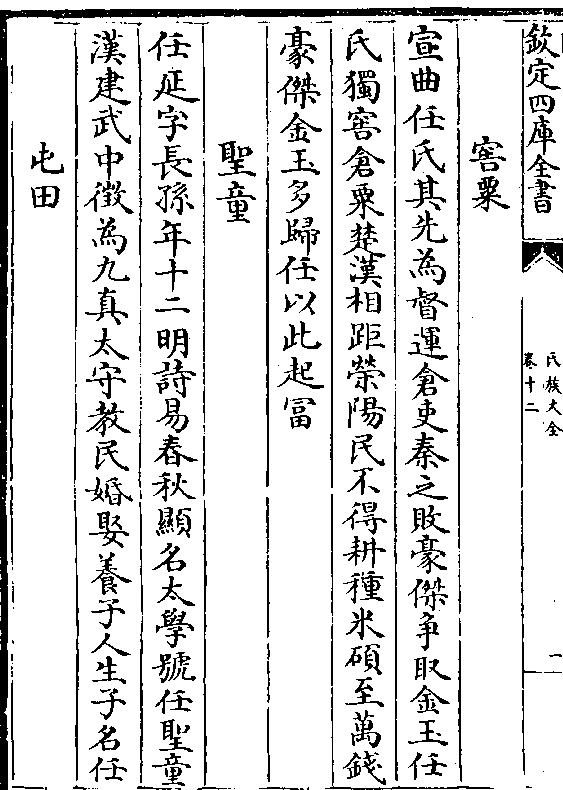 欽定四庫全書
氏族大全
卷十二
一
窖粟
宣曲任氏其先為督運倉吏秦之敗豪傑争取金玉任
氏獨窖倉粟楚漢相距榮陽民不得耕種米碩至萬錢
豪傑金玉多歸任以此起冨
聖童
任延字長孫年十二明詩易春秋顯名太學號任聖童
漢建武中徵為九真太守教民婚娶養子人生子名任
屯田